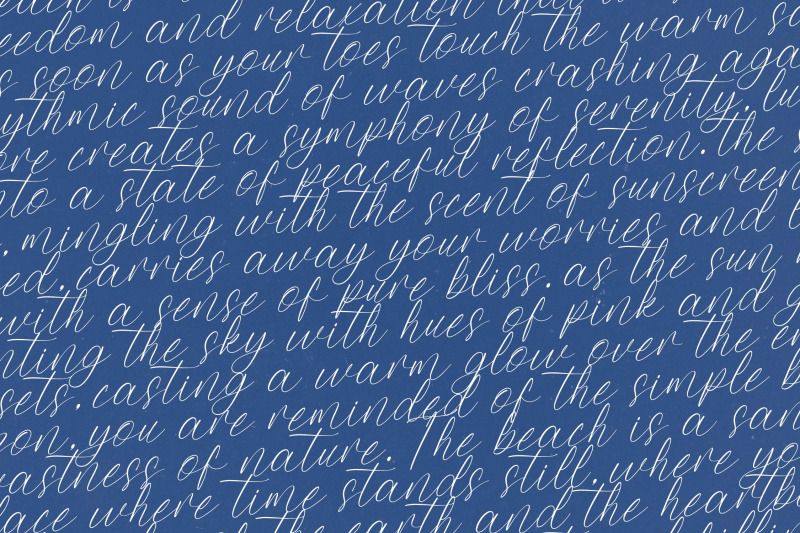 and relaxation that
eedom and relaxation
s soon as your toes touch the warm sa
ythmic sound of waves crashing aga
ore creates a symphony of serenity. lu
nto a state of peaceful reflection. the
. mingling with the scent of sunscreen
ed. carries away your worries and
with a sense of pure bliss. as the sun
nting the sky with hues of pink and g
sets. casting a warm glow over the en
on. you are reminded of the simple b
vastness of nature. The beach is a san
lace where time stands still. where yo
the earth and the heartb